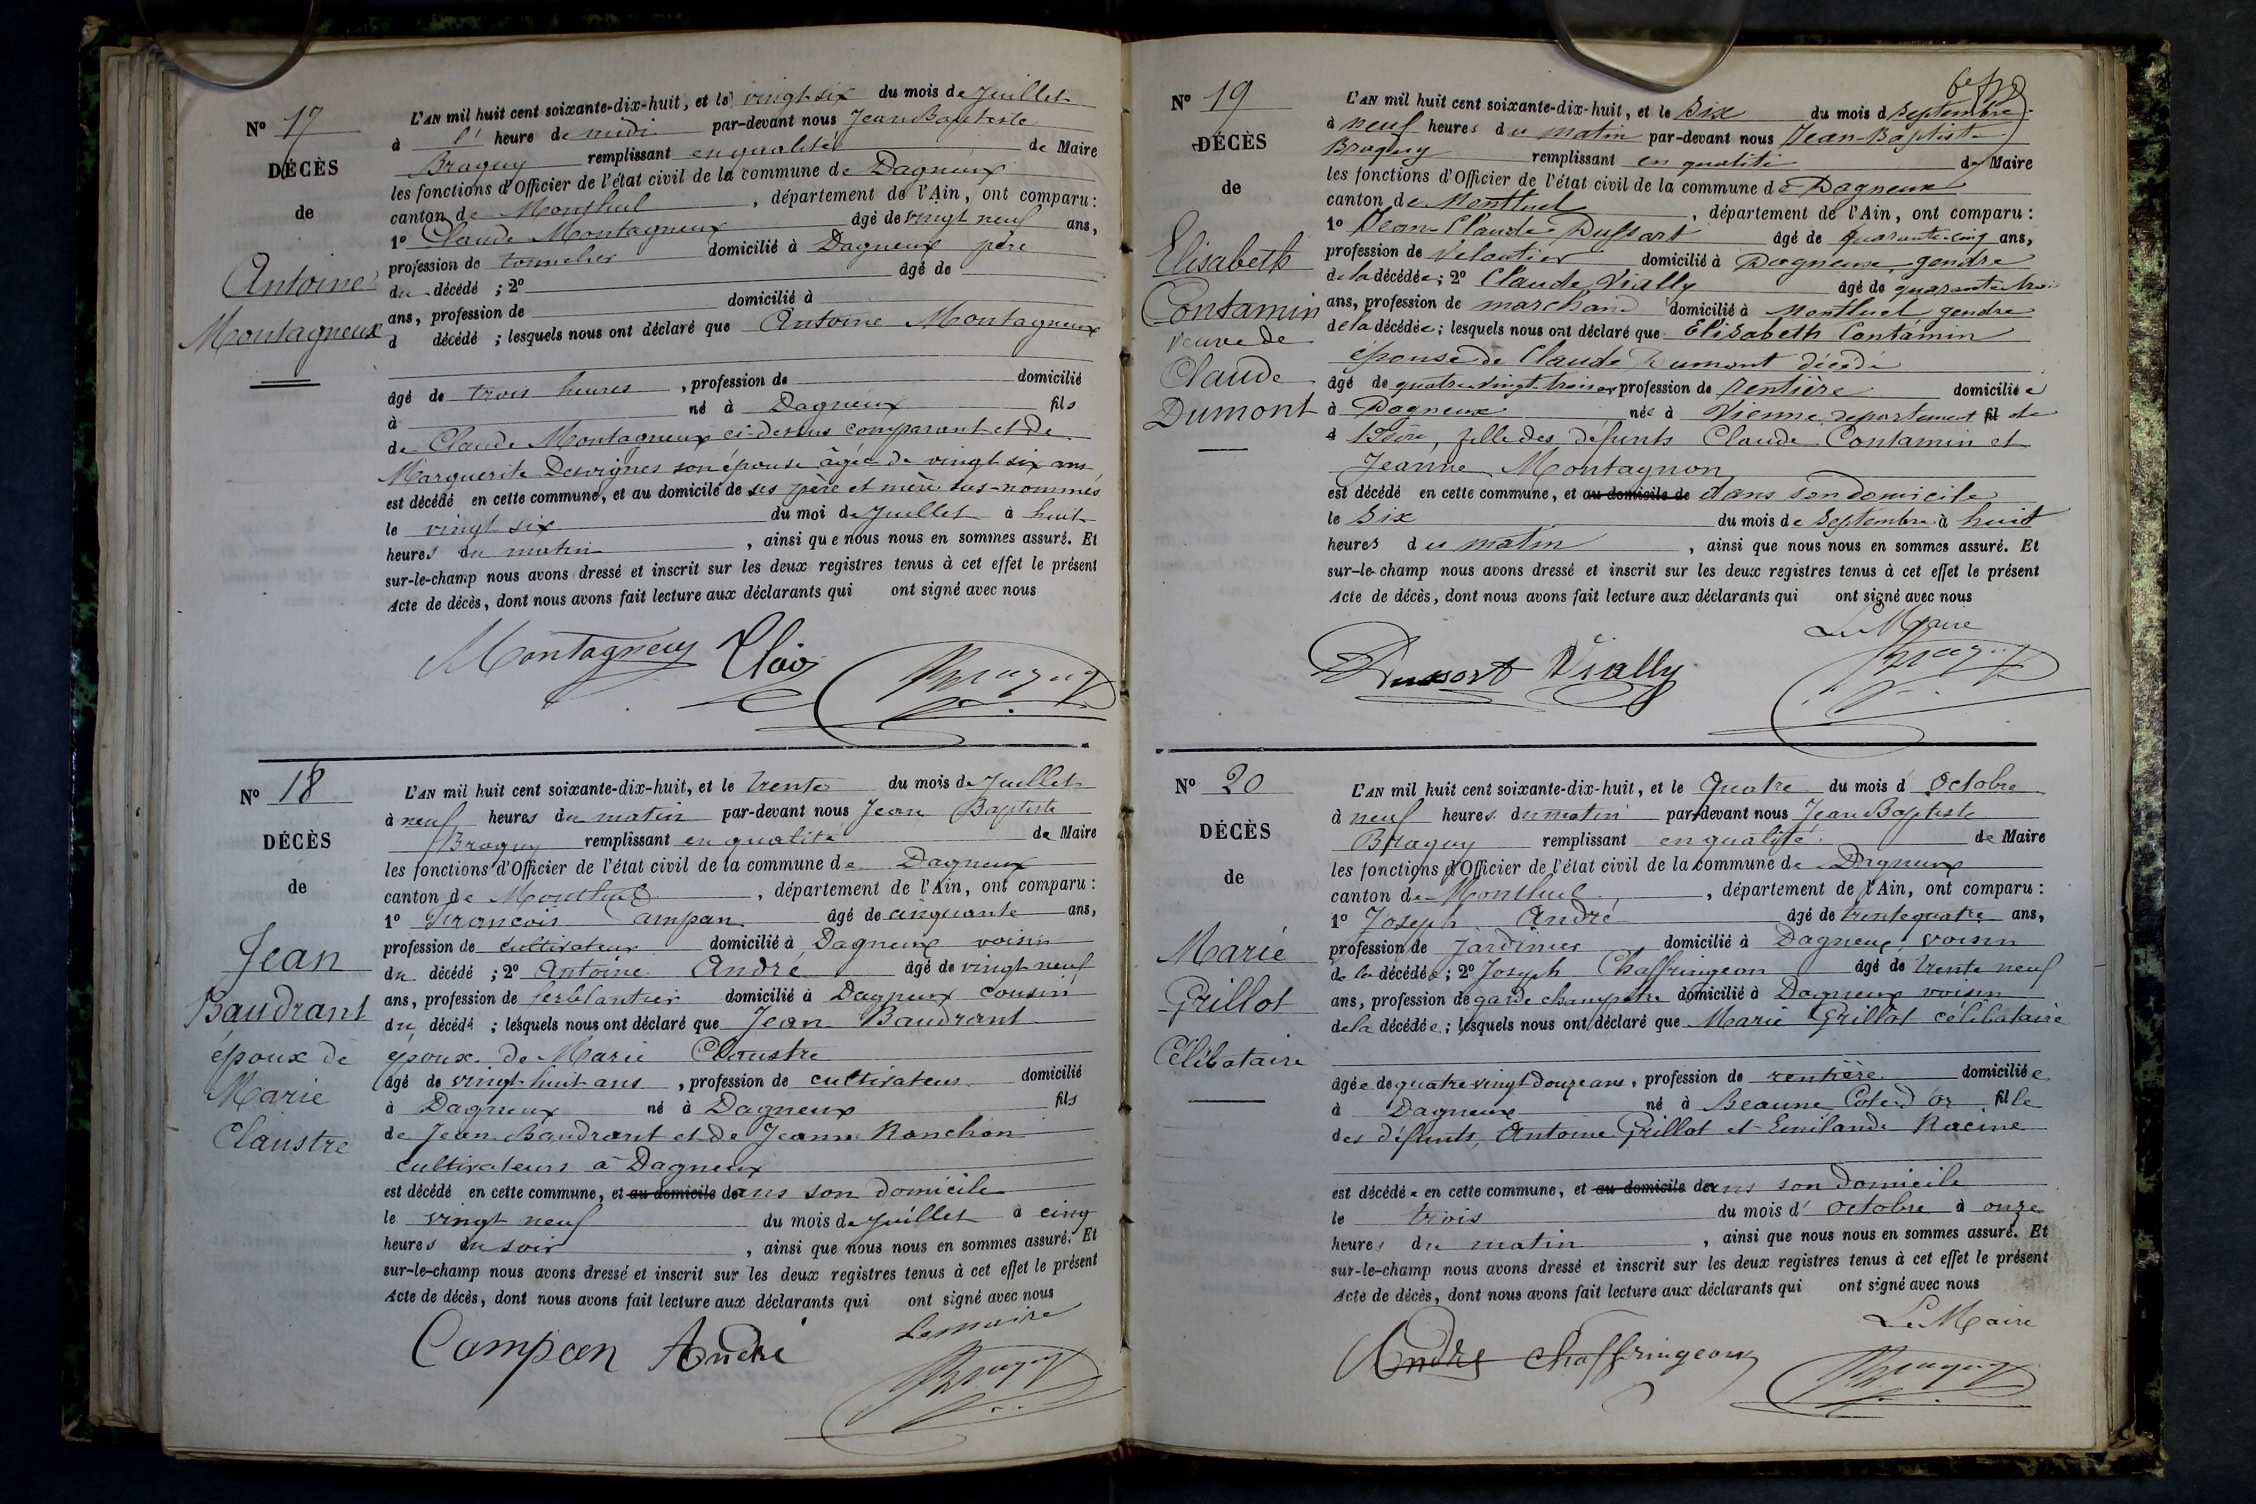 N° 17
DÉCÈS
de
Antoine
Montagneux
L'AN mil huit cent soixante-dix-huit, et le vingt-six du mois de Juillet
à l' heure de midi par-devant nous Jean Baptiste
Braguy remplissant en qualité de Maire
les fonctions d'Officier de l'état civil de la commune de Dagneux
canton de Montluel , département de l'Ain, ont comparu :
1° Claude Montagneux âgé de vingt neuf ans,
profession de tonnelier domicilié à Dagneux père
du décédé ; 2° âgé de
ans, profession de domicilié à
d décédé ; lesquels nous ont déclaré que Antoine Montagneux
âgé de trois heures , profession de domicilié
à né à Dagneux fils
de Claude Montagneux ci-dessus comparant et de
Marguerite Desvignes son épouse âgée de vingt six ans
est décédé en cette commune, et au domicile de ses père et mère sus-nommés
le vingt six du moi de Juillet à huit
heures du matin , ainsi que nous nous en sommes assuré. Et
sur-le-champ nous avons dressé et inscrit sur les deux registres tenus à cet effet le présent
Acte de décès, dont nous avons fait lecture aux déclarants qui ont signé avec nous
Montagneux Braguy
N° 18
DÉCÈS
de
Jean
Baudrant
époux de
Marie
Claustre
L'AN mil huit cent soixante-dix-huit, et le trente du mois de Juillet
à neuf heures du matin par-devant nous Jean Baptiste
Braguy remplissant en qualité de Maire
les fonctions d'Officier de l'état civil de la commune de Dagneux
canton de Montluel , département de l'Ain, ont comparu :
1° François Campan âgé de cinquante ans,
profession de cultivateur domicilié à Dagneux voisin
du décédé ; 2° Antoine André âgé de vingt neuf
ans, profession de ferblantier domicilié à Dagneux cousin
du décédé ; lesquels nous ont déclaré que Jean Baudrant
époux de Marie Claustre
âgé de vingt huit ans , profession de cultivateur domicilié
à Dagneux né à Dagneux fils
de Jean Baudrant et de Jeanne Ronchon
cultivateurs à Dagneux
est décédé en cette commune, et au domicile dans son domicile
le vingt neuf du mois de Juillet à cinq
heures du soir , ainsi que nous nous en sommes assuré. Et
sur-le-champ nous avons dressé et inscrit sur les deux registres tenus à cet effet le présent
Acte de décès, dont nous avons fait lecture aux déclarants qui ont signé avec nous
Le maire
Campan André
Braguy
N° 19
DÉCÈS
de
Elisabeth
Contamin
veuve de
Claude
Dumont
L'AN mil huit cent soixante-dix-huit, et le Six du mois d Septembre
à neuf heures du matin par-devant nous Jean-Baptiste
Braguy remplissant en qualité de Maire
les fonctions d'Officier de l'état civil de la commune de Dagneux
canton de Montluel , département de l'Ain, ont comparu :
1° Jean-Claude Dussort âgé de quarante-cinq ans,
profession de Veloutier domicilié à Dagneux gendre
de la décédée ; 2° Claude Vially âgé de quarante trois
ans, profession de marchand domicilié à Montluel gendre
de la décédée ; lesquels nous ont déclaré que Elisabeth Contamin
épouse de Claude Dumont décédé
âgé de quatre vingt treize profession de rentière domiciliée
à Dagneux née à Vienne département fil de
d Isère, fille des défunts Claude Contamin et
Jeanne Montagnon
est décédé en cette commune, et au domicile de dans son domicile
le Six du mois de Septembre à huit
heures du matin , ainsi que nous nous en sommes assuré. Et
sur-le-champ nous avons dressé et inscrit sur les deux registres tenus à cet effet le présent
Acte de décès, dont nous avons fait lecture aux déclarants qui ont signé avec nous
Le Maire
Dussort Vially Braguy
N° 20
DÉCÈS
de
Marie
Grillot
Célibataire
L'AN mil huit cent soixante-dix-huit, et le Quatre du mois d Octobre
à neuf heures du matin par-devant nous Jean Baptiste
Braguy remplissant en qualité de Maire
les fonctions d'Officier de l'état civil de la commune de Dagneux
canton de Montluel , département de l'Ain, ont comparu :
1° Joseph André âgé de trente quatre ans,
profession de Jardinier domicilié à Dagneux voisin
de la décédée ; 2° Joseph Chaffringeon âgé de trente neuf
ans, profession de garde champêtre domicilié à Dagneux voisin
de la décédée ; lesquels nous ont déclaré que Marie Grillot célibataire
âgée de quatre vingt douze ans, profession de rentière domiciliée
à Dagneux né à Beaune Côte d'or fille
des défunts Antoine Grillot et Emilande Racine
est décédée en cette commune, et au domicile dans son domicile
le trois du mois d' octobre à onze
heures du matin , ainsi que nous nous en sommes assuré. Et
sur-le-champ nous avons dressé et inscrit sur les deux registres tenus à cet effet le présent
Acte de décès, dont nous avons fait lecture aux déclarants qui ont signé avec nous
Le Maire
André Chaffringeon Braguy